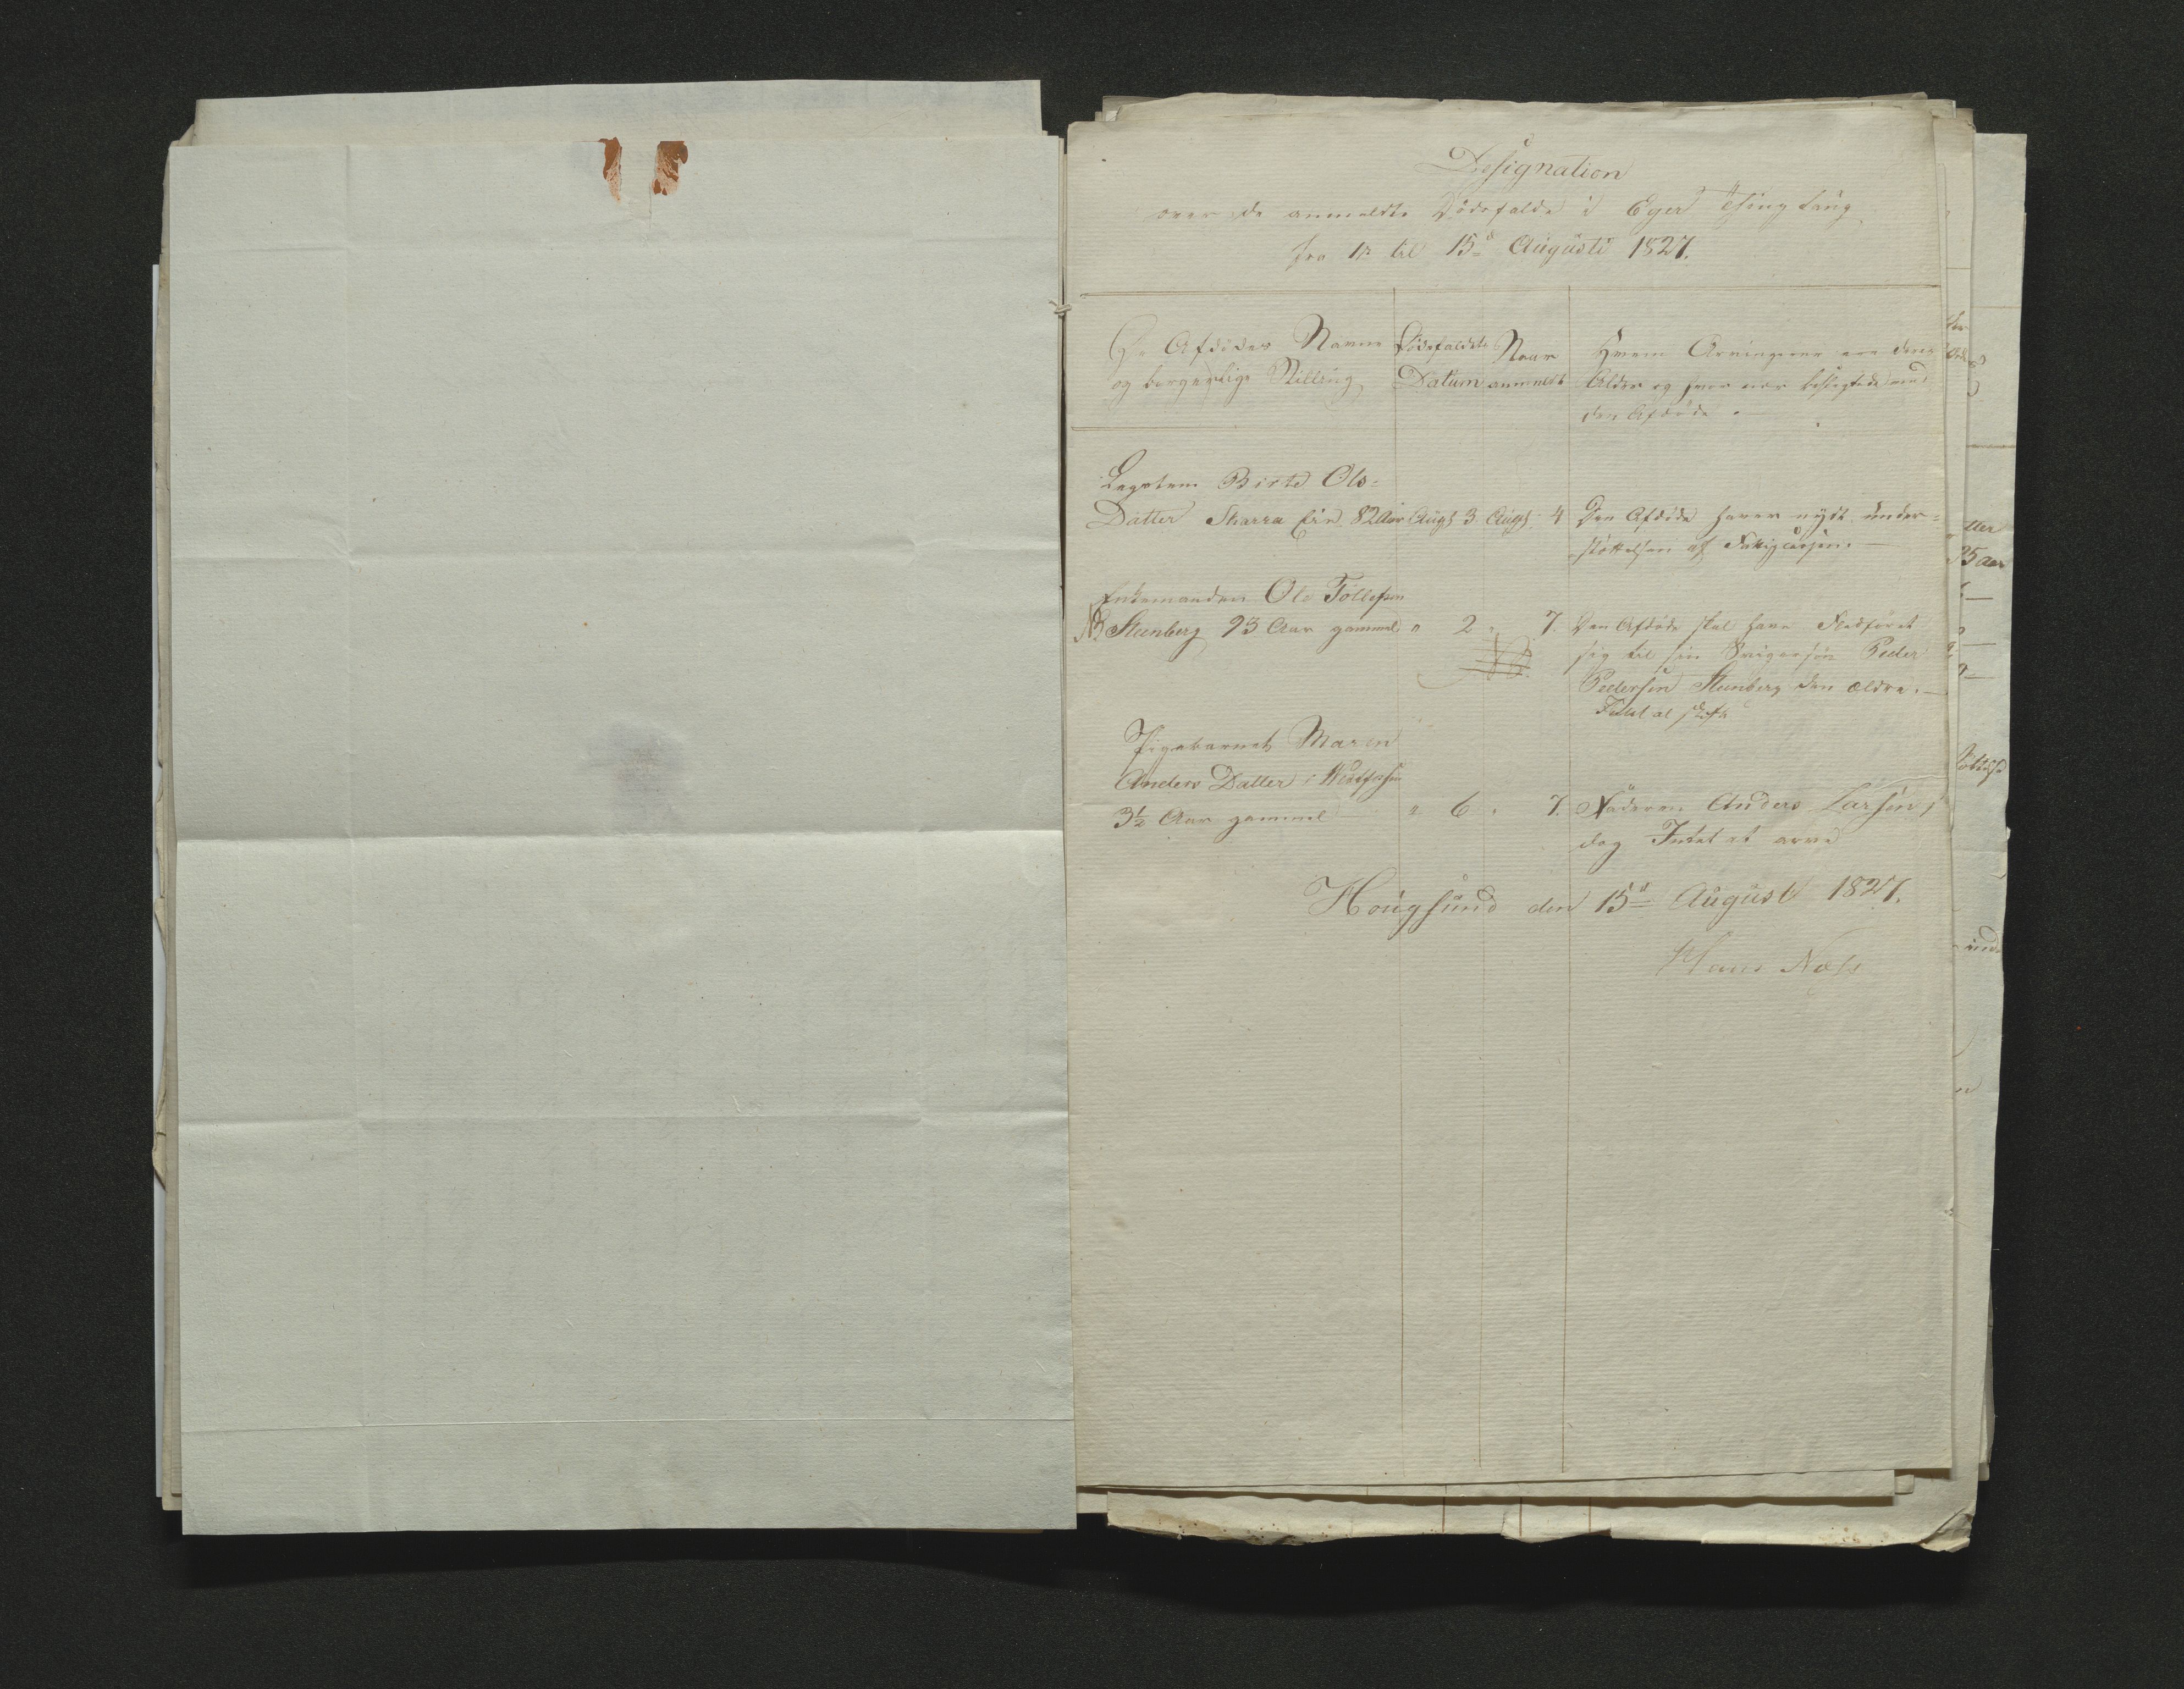 Designation
over de anmeldte Dödsfalde i Eger Thinglaug
fra 1te til 15de Augusti 1827.
De Afdödes Navne
og borgerlige Stilling
Dödsfaldets
Datum
Naar
anmeldt
Hvem Arvingerne ere deres
Alder og hvor nær beslegtede med
den Afdöde.
Lægslem Birte Ols-
Datter Skarra Eie 82 Aar Augt 3 Augt 4 Den Afdöde haver nydt under-
stöttelsen af Fattigcassen.
Enkemanden Ole Tollefsen
NB Steenberg 93 Aar gammel " 2 " 7. Den Afdöde skal have Fledföret
sig til sin Svigersön Peder
Pedersen Steenberg den ældre.
Intet at skifte
Pigebarnet Maren
Anders Datter i
3½ Aar gammel " 6 " 7. Faderen Anders Larsen,
dog Intet at arve
Hougsund den 15de August 1827.
Hans Næls
tter
95 aar